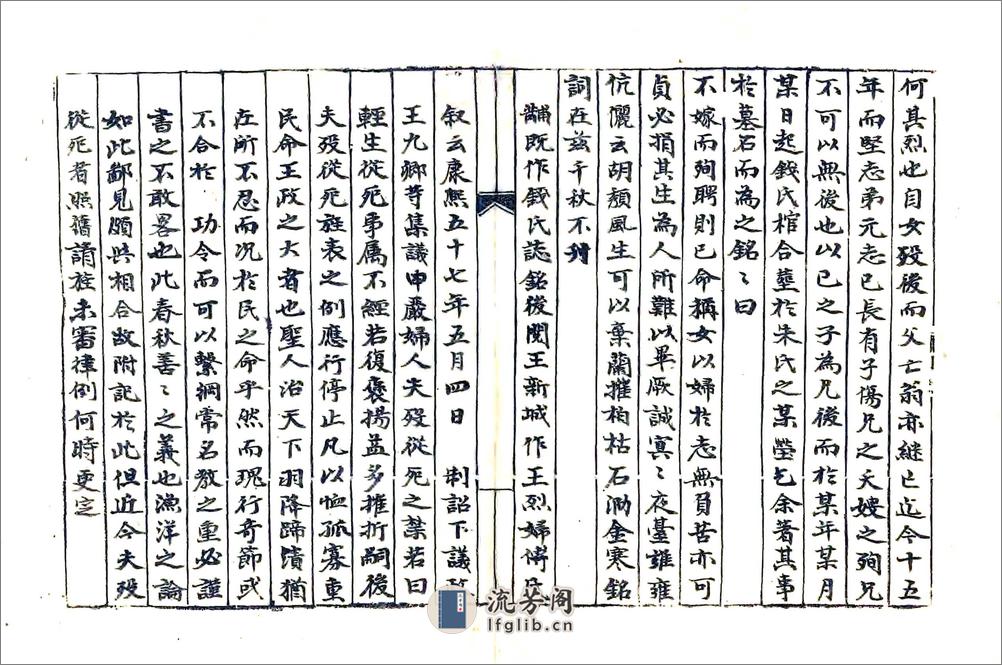 何其烈也自女歿後而父亡翁亦継亡迄今十五
年而堅志弟元志已長有子傷兄之夭嫂之殉兄
不可以無後也以已之子為兄後而於某年某月
某日起錢氏棺合塟於朱氏之某塋乞余著其事
於墓石而為之銘〻曰
不嫁而殉聘則已命稱女以婦於志無負苦亦可
貞必捐其生為人所難以畢厥誠冥〻夜臺雍雍
伉儷云胡頹風生可以棄蘭摧柏枯石泐金寒銘
詞在兹千秋不刊
黼既作錢氏誌銘後閱王新城作王烈婦傳
叙云康熙五十七年五月四日 制詔下議政
王九卿等集議申嚴婦人夫歿從死之禁若曰
輕生從死事属不經若復褒揚益多摧折嗣後
夫歿從死旌表之例應行停止凡以恤孤寡重
民命王政之大者也聖人治天下羽降蹄潰猶
在所不忍而况於民之命乎然而瑰行奇節或
不合於 功令而可以繫綱常名教之重必謹
書之不敢畧也此春秋善〻之義也漁洋之論
如此鄙見頗與相合故附記於此但近今夫歿
從死者照舊請旌未審律例何時更定
流芳阁
lfglib.cn